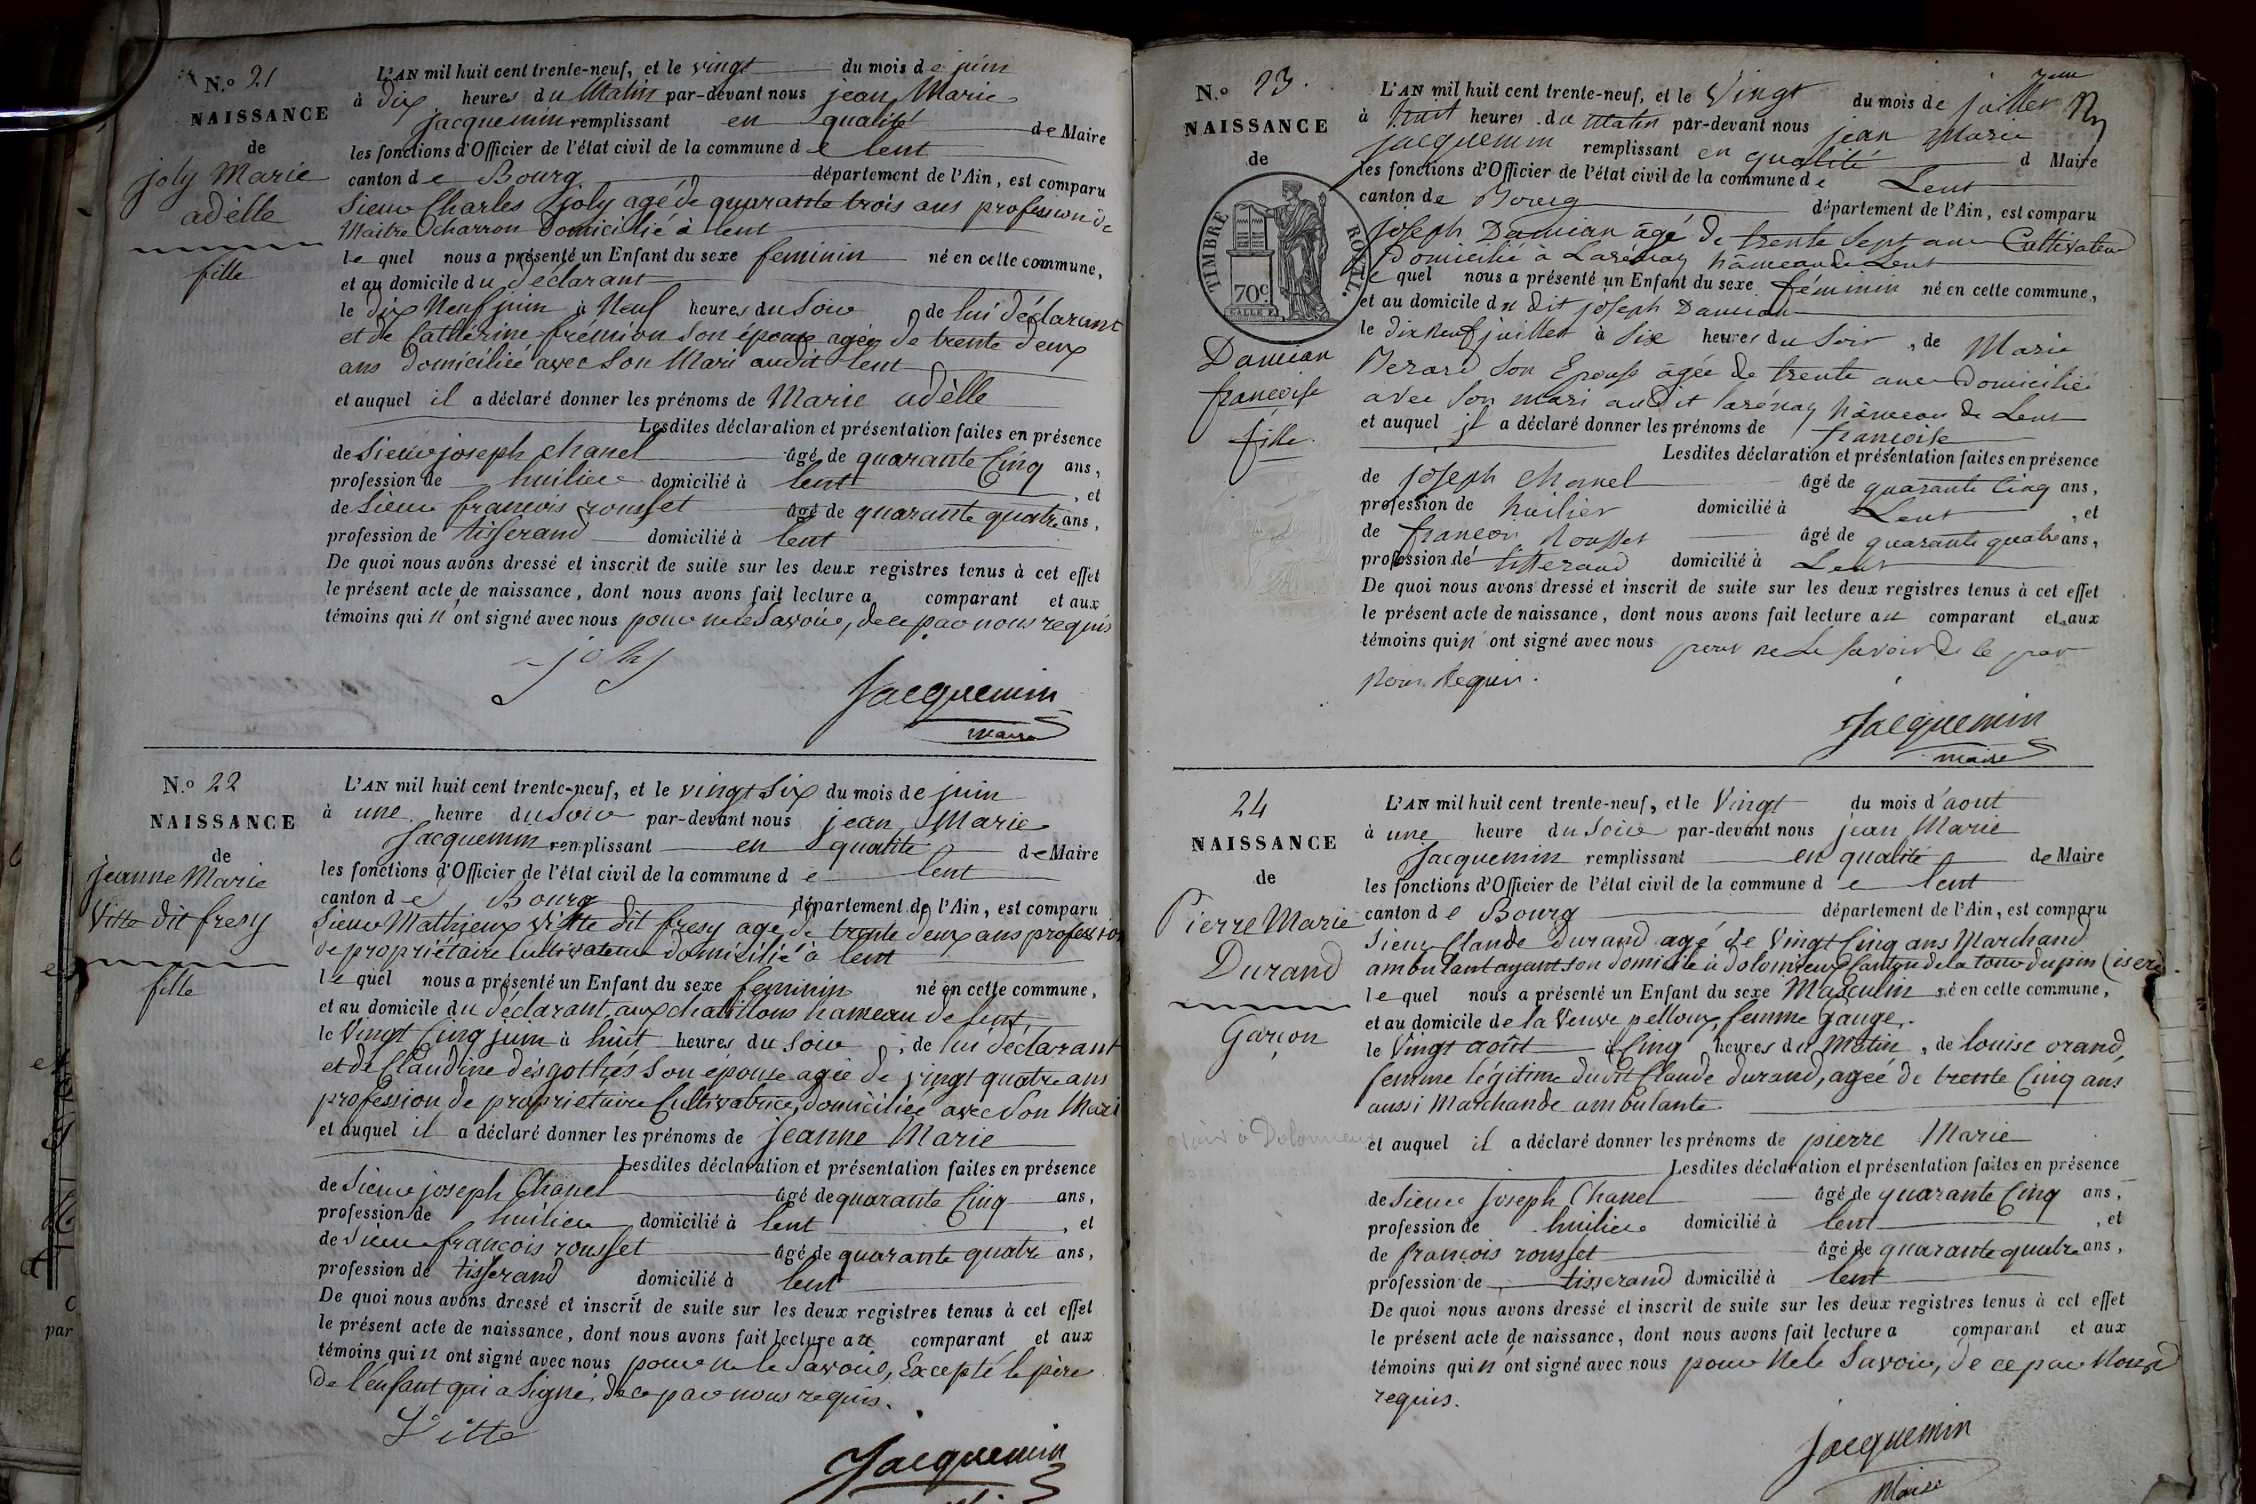 N.º 21
NAISSANCE
de
joly Marie
adèlle
fille
L'AN mil huit cent trente-neuf, et le vingt du mois de juin
à dix heures du Matin par-devant nous jean Marie
Jacquemin remplissant en qualité de Maire
les fonctions d'Officier de l'état civil de la commune de lent
canton de Bourg département de l'Ain, est comparu
Sieur Charles joly agé de quarante trois ans profession de
Maitre charron domicilié à lent
le quel nous a présenté un Enfant du sexe feminin né en cette commune,
et au domicile du déclarant
le dix Neuf juin à Neuf heures du Soir, de lui déclarant
et de Cathérine frémion son épouse agée de trente deux
ans domiciliée avec Son Mari audit lent
et auquel il a déclaré donner les prénoms de Marie adèlle
Lesdites déclaration et présentation faites en présence
de Sieur joseph chanel âgé de quarante Cinq ans,
profession de huilier domicilié à lent, et
de Sieur françois rousset âgé de quarante quatre ans,
profession de tisserand domicilié à lent
De quoi nous avons dressé et inscrit de suite sur les deux registres tenus à cet effet
le présent acte de naissance, dont nous avons fait lecture a comparant et aux
témoins qui n'ont signé avec nous pour ne le Savoir, de ce par nous requis
joly
Jacquemin
maire
N.º 22
NAISSANCE
de
jeanne Marie
Vitte dit fresy
fille
L'AN mil huit cent trente-neuf, et le vingt Six du mois de juin
à une heure du Soir par-devant nous jean Marie
Jacquemin remplissant en qualité de Maire
les fonctions d'Officier de l'état civil de la commune de lent
canton de Bourg département de l'Ain, est comparu
Sieur Mathieux Vitte dit fresy agé de trente deux ans profession
de propriétaire Cultivateur domicilié à lent
le quel nous a présenté un Enfant du sexe feminin né en cette commune,
et au domicile du déclarant, aux chatillons hameau de lent,
le Vingt Cinq juin à huit heures du Soir, de lui déclarant
et de Claudine désgothés Son épouse agée de vingt quatre ans
profession de propriétaire Cultivatrice, domiciliée avec Son Mari
et auquel il a déclaré donner les prénoms de jeanne Marie
Lesdites déclaration et présentation faites en présence
de Sieur joseph Chanel âgé de quarante Cinq ans,
profession de huilier domicilié à lent, et
de Sieur françois rousset âgé de quarante quatre ans,
profession de tisserand domicilié à lent
De quoi nous avons dressé et inscrit de suite sur les deux registres tenus à cet effet
le présent acte de naissance, dont nous avons fait lecture au comparant et aux
témoins qui n ont signé avec nous pour ne le Savoir, Excepté le père
de l'enfant qui a Signé, de ce par nous requis.
Vitte
Jacquemin
N.º 23.
NAISSANCE
de
TIMBRE ROYAL.
70c
Damian
françoise
fille.
L'AN mil huit cent trente-neuf, et le Vingt du mois de juillet
à huit heures du Matin par-devant nous jean Marie
Jacquemin remplissant en qualité d Maire
les fonctions d'Officier de l'état civil de la commune de Lent
canton de Bourg département de l'Ain, est comparu
Joseph Damian âgé de trente sept ans Cultivateur
Domicilié à Larénay hâmeau de Lent
le quel nous a présenté un Enfant du sexe féminin né en cette commune,
et au domicile du dit joseph Damian
le dix neuf juillet à Six heures du Soir, de Marie
Berard son Epouse âgée de trente ans Domiciliée
avec Son mari au dit larénay hâmeau de Lent
et auquel il a déclaré donner les prénoms de françoise
Lesdites déclaration et présentation faites en présence
de joseph Chanel âgé de quarante Cinq ans,
profession de huilier domicilié à Lent, et
de françois Rousset âgé de quarante quatre ans,
profession de tisserand domicilié à Lent
De quoi nous avons dressé et inscrit de suite sur les deux registres tenus à cet effet
le présent acte de naissance, dont nous avons fait lecture au comparant et aux
témoins qui n' ont signé avec nous pour ne Le Savoir de Ce par
nous Requis.
Jacquemin
maire
24
NAISSANCE
de
Pierre Marie
Durand
Garçon
L'AN mil huit cent trente-neuf, et le Vingt du mois d'aout
à une heure du Soir par-devant nous jean Marie
Jacquemin remplissant en qualité de Maire
les fonctions d'Officier de l'état civil de la commune de lent
canton de Bourg département de l'Ain, est comparu
Sieur Claude durand agé de Vingt Cinq ans Marchand
ambulant ayant son domicile à dolomieux Canton de la tour dupin (isere).
le quel nous a présenté un Enfant du sexe Masculin né en cette commune,
et au domicile de la Veuve pelloux, femme gauge,
le Vingt août à Cinq heures du Matin, de louise orand,
femme légitime dudit Claude durand, agée de trente Cinq ans
aussi Marchande ambulante
et auquel il a déclaré donner les prénoms de pierre Marie
Lesdites déclaration et présentation faites en présence
de Sieur Joseph Chanel âgé de quarante Cinq ans,
profession de huilier domicilié à lent, et
de françois rousset âgé de quarante quatre ans,
profession de tisserand domicilié à lent
De quoi nous avons dressé et inscrit de suite sur les deux registres tenus à cet effet
le présent acte de naissance, dont nous avons fait lecture a comparant et aux
témoins qui n'ont signé avec nous pour Ne le Savoir, de ce par Nous
requis.
Jacquemin
Maire